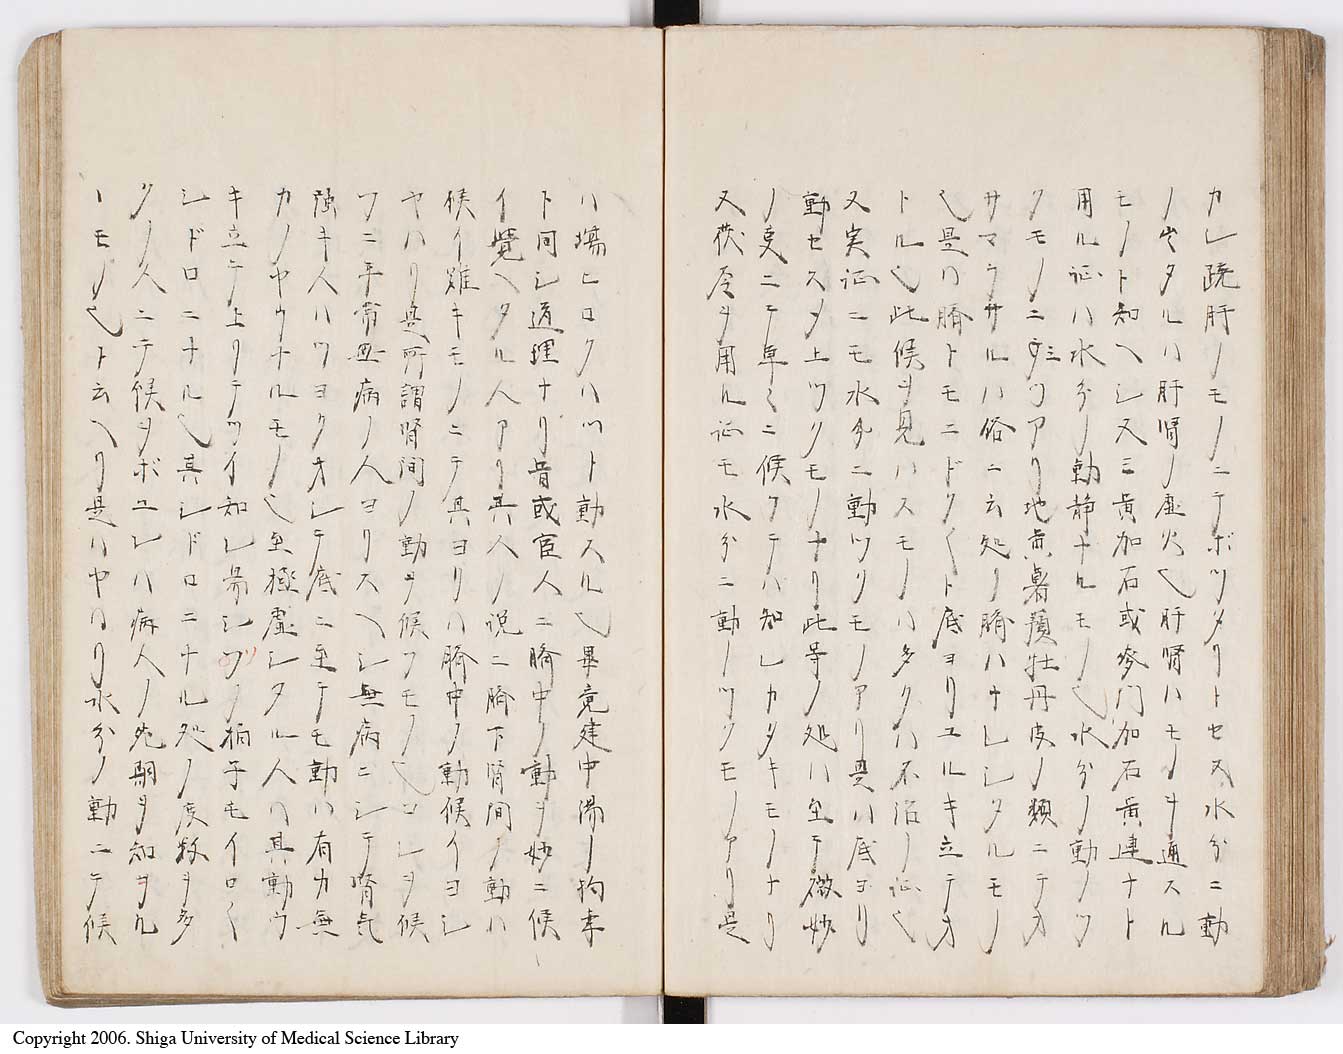 カレ疏肝ノモノニテボツタリトセス水分ニ動
ノ出タルハ肝腎ノ虚火也肝腎ハモノヲ通スル
モノト知ヘシ又三黄加石或麥門加石黄連ナト
用ル证ハ水分ノ動静ナルモノ也水分ノ動ノツ
クモノニ二三ツアリ地黄薯蕷牡丹皮ノ類ニテオ
サマラサルハ俗ニ云処リ臍ハナレシタルモノ
也是ハ臍トモニドク〱ト底ヨリユルキ立テオ
トル也此候ヲ見ハスモノハ多クハ不治ノ证也
又実证ニモ水分ニ動ツクモノアリ是ハ底ヨリ
動セスメ上ツクモノナリ此等ノ処ハ至テ微妙
ノ㕝ニテ卓々ニ候クテハ知レカタキモノナリ
又茯苓ヲ用ル证モ水分ニ動ノツクモノアリ是
ハ瘍ヒロクハツト動スル也畢竟建中湯ノ拘挛
ト同シ道理ナリ昔或官人ニ臍中ノ動ヲ妙ニ候
イ覺ヘタル人アリ其人ノ説ニ臍下腎間ノ動ハ
候イ難キモノニテ其ヨリハ臍中ノ動候イヨシ
ヤハリ是所謂腎間ノ動ヲ候フモノ也コレヲ候
フニ平常無病ノ人ヨリスヘシ無病ニシテ腎気
強キ人ハツヨクオシテ底ニ至テモ動ハ有カ無
カノヤウナルモノ也至極虚シタル人ハ其動ウ
キ立テ上リテツイ知レ易シツノ拍子モイロ〱
シドロニナル也其シドロニナル処ノ度数ヲ多
クノ人ニテ候ヲボユレハ病人ノ死期ヲ知ヲル
ヽモノ也ト云ヘリ是ハヤハリ水分ノ動ニテ候
Copyright 2006. Shiga University of Medical Science Library